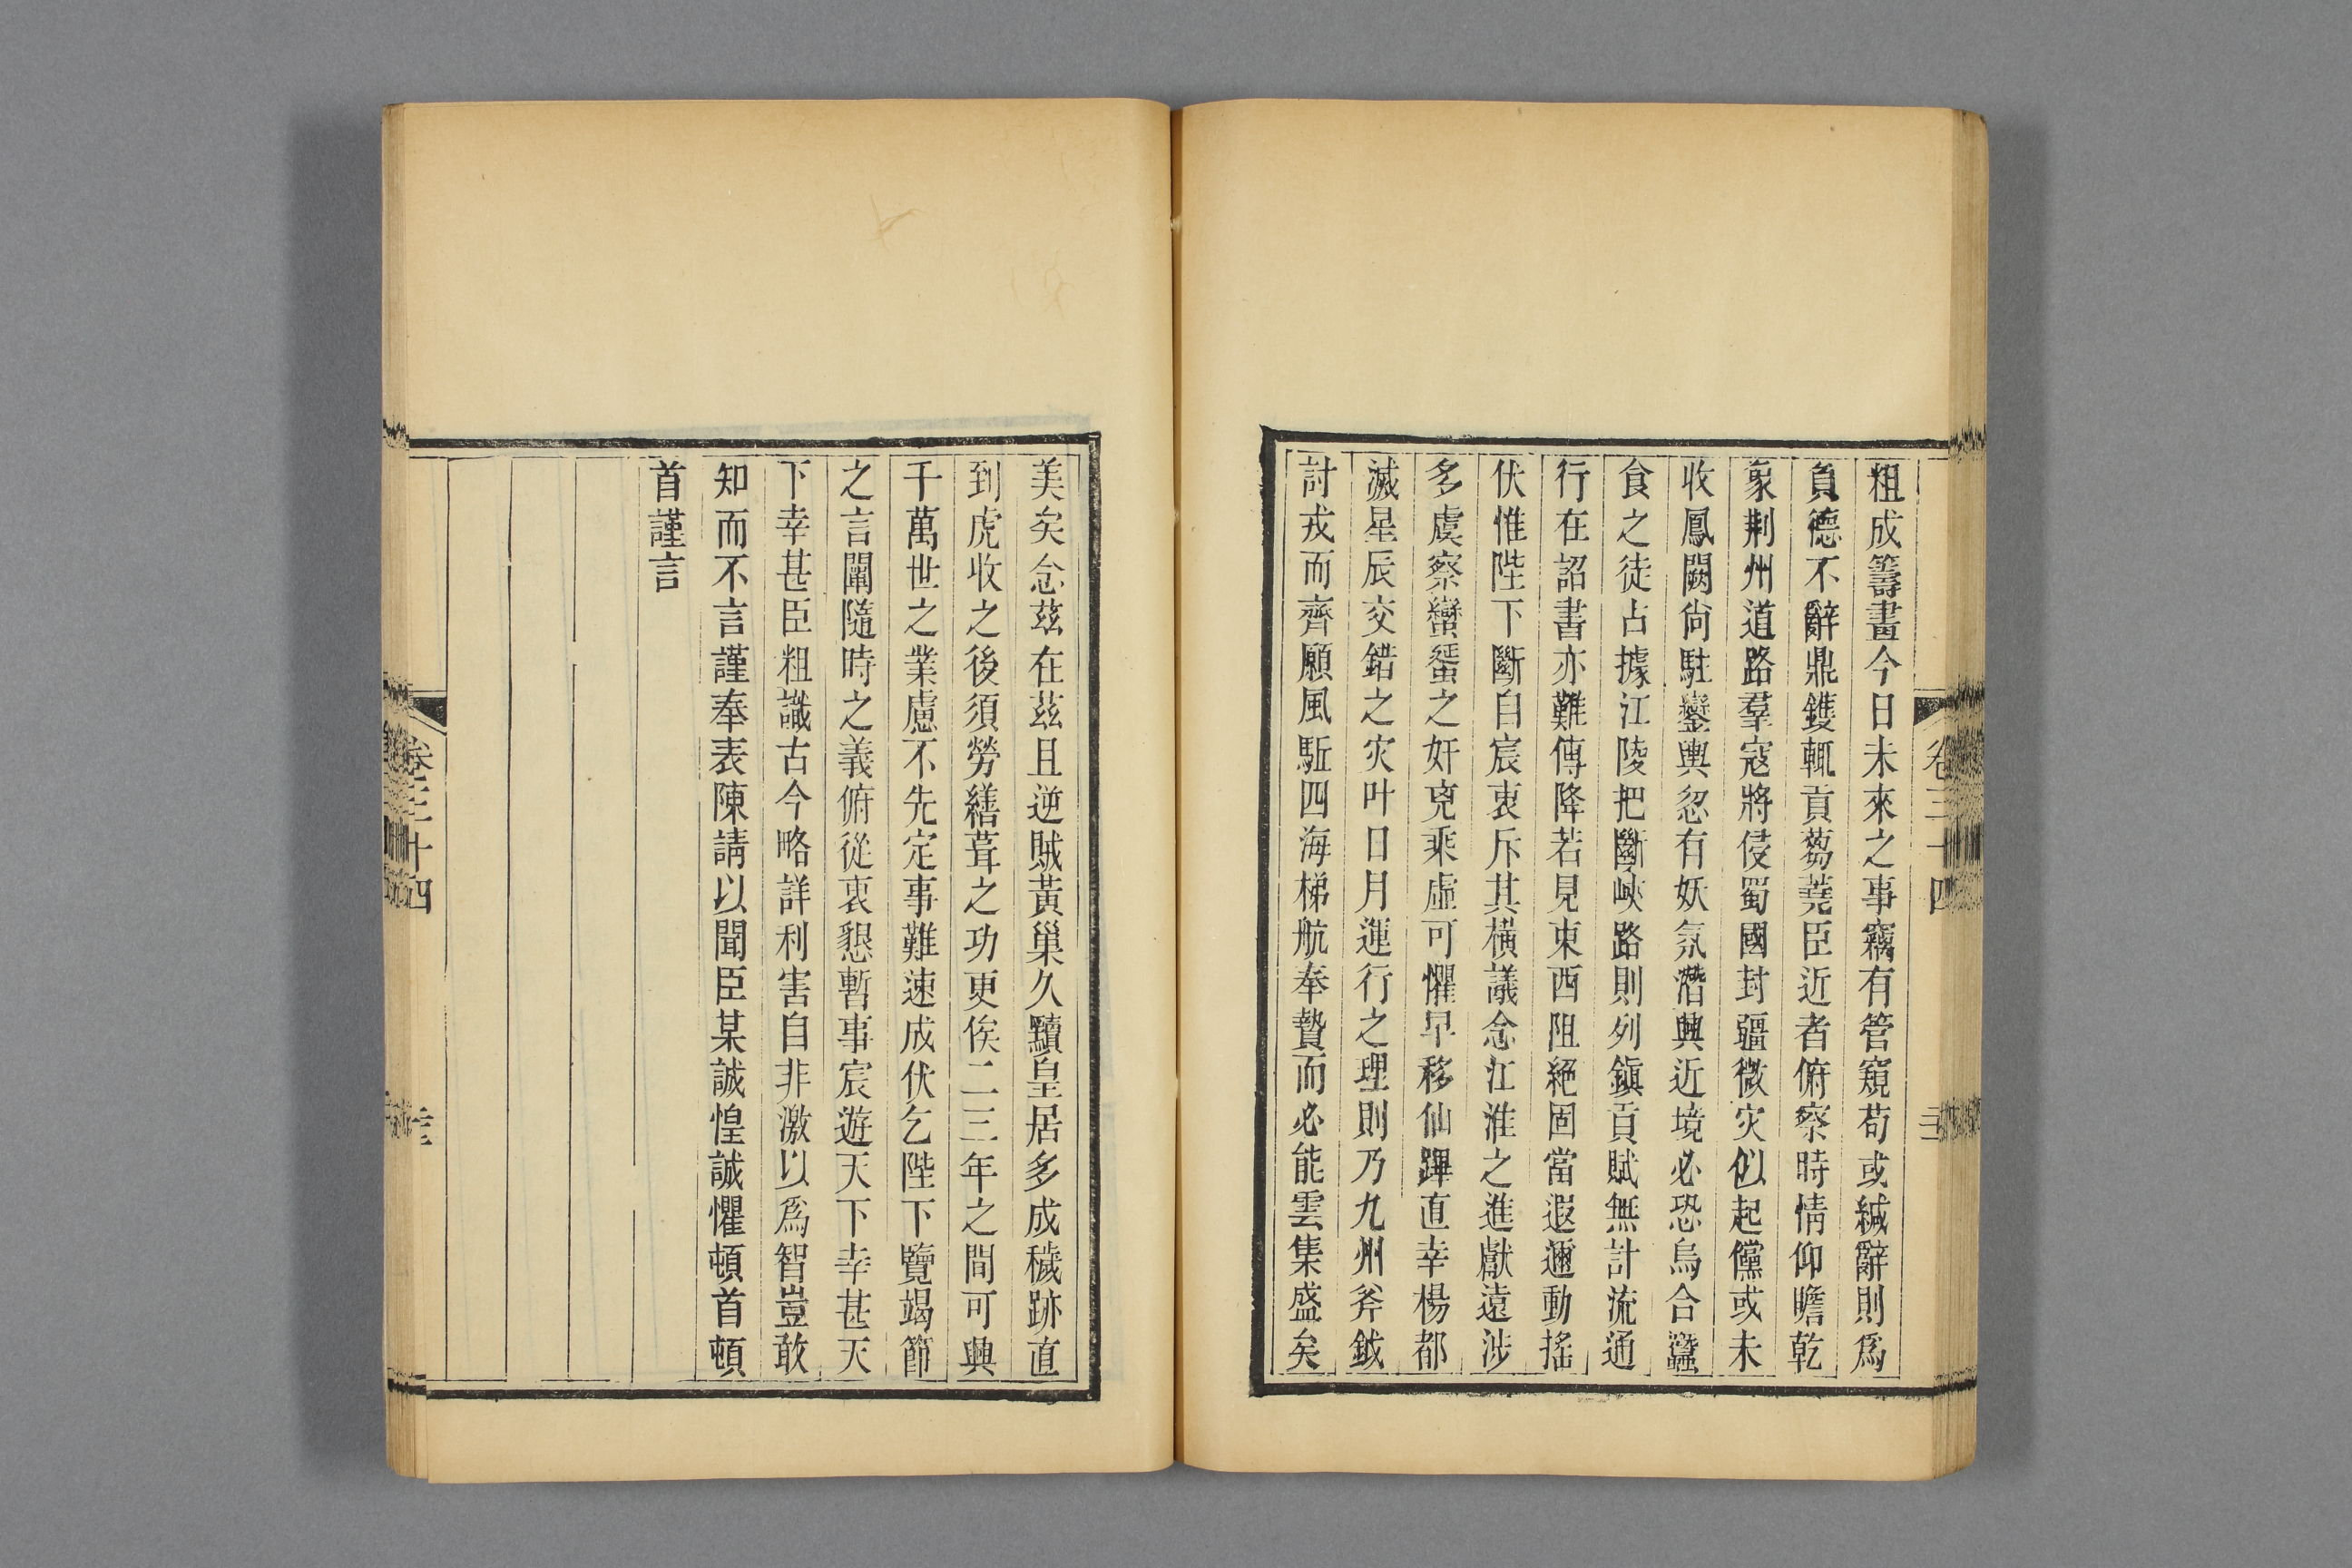 粗成籌畫今日未來之事竊有管窺苟或緘辭則爲
負德不辭鼎鑊輒貢蒭蕘臣近者俯察時情仰瞻乾
象荆州道路羣寇將侵蜀國封疆微灾似起儻或未
收鳳闕尙駐鑾輿忽有妖氛潛興近境必恐烏合蠶
食之徒占據江陵把斷峽路則列鎭貢賦無計流通
行在詔書亦難傳降若見東西阻絕固當遐邇動搖
伏惟陛下斷自宸衷斥其橫議念江淮之進獻遠涉
多虞察蠻蜑之奸兇乘虛可懼早移仙蹕直幸楊都
滅星辰交錯之灾叶日月運行之理則乃九州斧鉞
討戎而齊願風駈四海梯航奉贄而必能雲集盛矣
卷三十四
美矣念茲在茲且逆賊黃巢久黷皇居多成穢跡直
到虎收之後須勞繕葺之功更俟二三年之間可興
千萬世之業慮不先定事難速成伏乞陛下覽竭節
之言闡隨時之義俯從衷懇暫事宸遊天下幸甚天
下幸甚臣粗識古今略詳利害自非激以爲智豈敢
知而不言謹奉表陳請以聞臣某誠惶誠懼頓首頓
首謹言
卷三十四